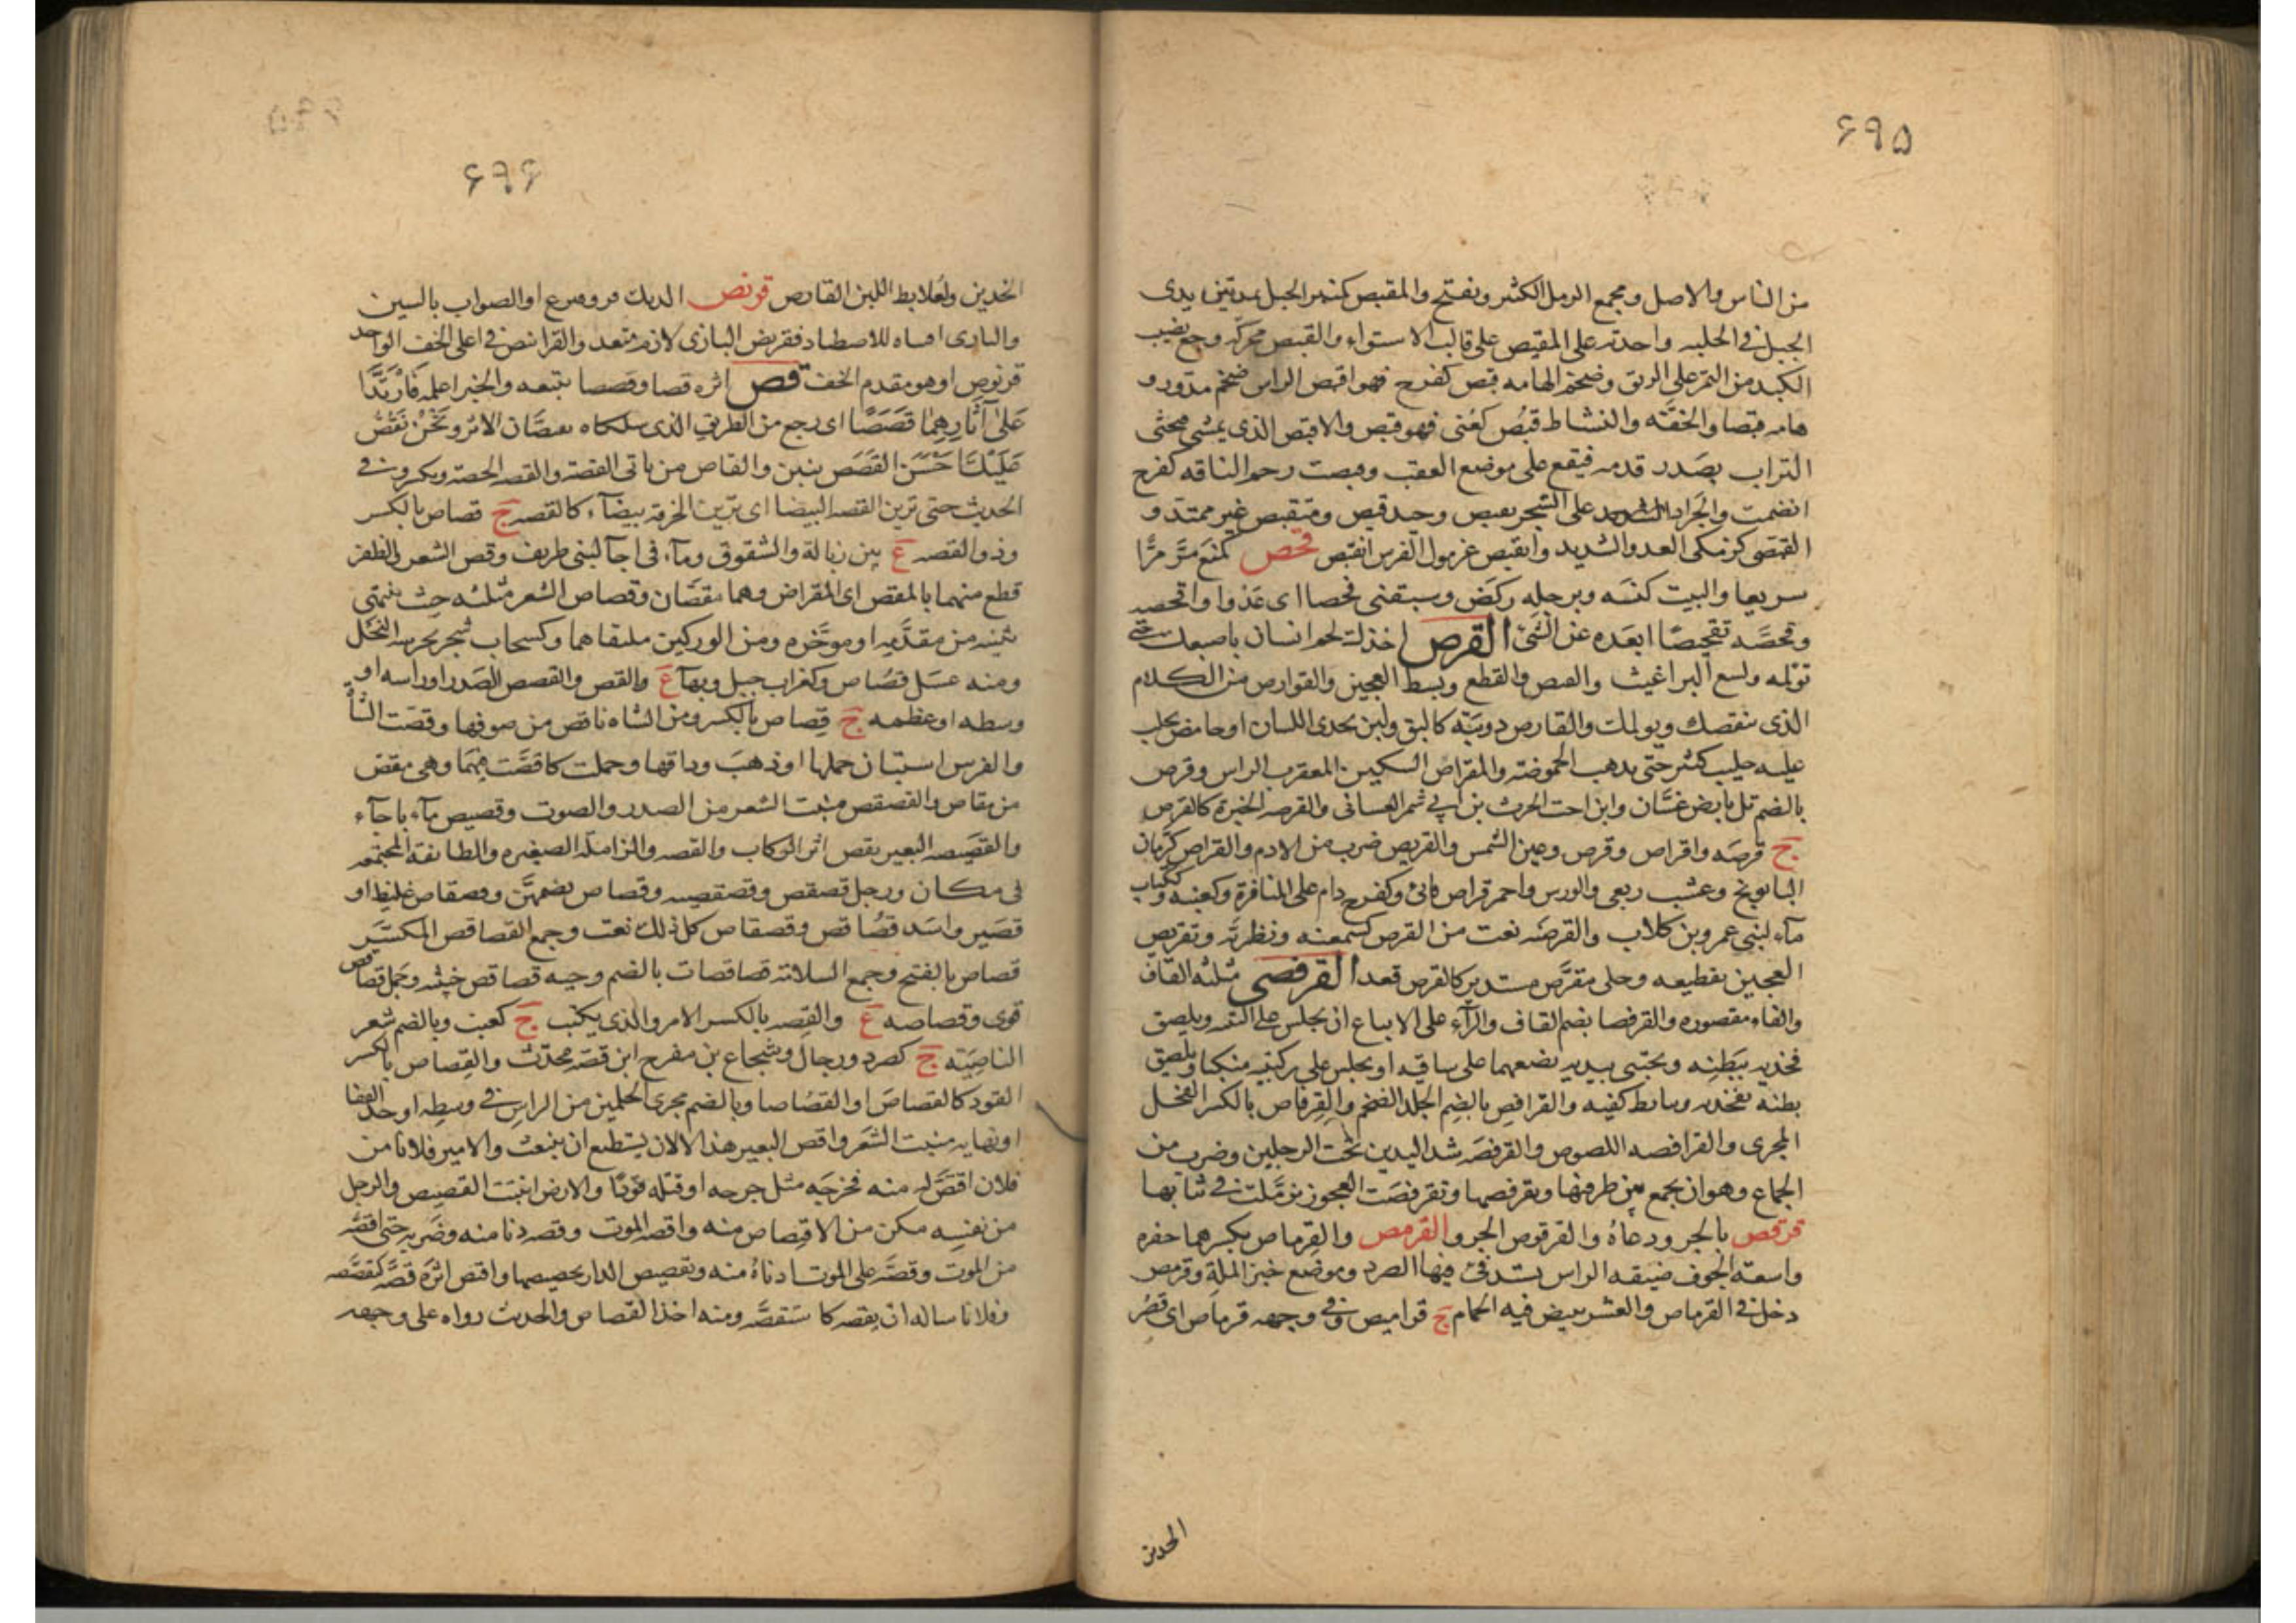 ۶۹۵
من الناس والاصل ومجمع الرمل الكثير ويفتح والمقبص كمنبر الحبل يمد بين يدى
الخيل فى الحلبه واحدته على المقبص على قالب الاستواء والقبص محركه وجع يصيب
الكبد من التمر على الريق وضخم الهامه قبص كفرح فهو اقبص الراس ضخم مدور و
هامه قبصا والخفه والنشاط قبص كعنى فهو قبص والاقبص الذى يمشى فيحثى
التراب بصدر قدمه فيقع على موضع العقب وقبصت رحم الناقه كفرح
انضمت والجراد على الشجر تقبص وحبل قبص ومتقبص غير ممتد و
القبصى كزمكى العدو الشديد وانقبص غرمول الفرس انقبص قحص كمنع مر مرا
سريعا والبيت كنسه وبرجله ركض وسبقنى قحصا اى عدوا واقحصه
وقحصه تقحيصا ابعده عن الشئ القرص اخذك لحم انسان باصبعك حتى
تولمه ولسع البراغيث والقبص والقطع وبسط العجين والقوارص من الكلام
الذى ينغصك ويولمك والقارص دويبه كالبق ولبن يحذى اللسان او حامض يحلب
عليه حليب كثير حتى يذهب الحموضه والمقراص السكين المعقرب الراس وقرص
بالضم تل بارض غسان وابن اخت الحرث بن ابى شمر الغسانى والقرصه الخبزه كالقرص
ج قرصه واقراص وقرص وعين الشمس والقريص ضرب من الادم والقراص كرمان
البابونج وعشب ربعى والورس واحمر قراص قانئ وكفرح دام على المنافرة وكغيبه وككتاب
مآء لبنى عمرو بن كلاب والقرصنه نعت من القرص كسمعنه ونظرنه وتقريص
العجين تقطيعه وحلى مقرص مستدير كالقرص قعد القرفصى مثلثه القاف
والفاء مقصوره والقرفصا بضم القاف والرآء على الاتباع ان يجلس على اليتيه ويلصق
فخذيه ببطنه ويحتبى بيديه يضعهما على ساقيه او يجلس على ركبتيه منكبا ويلصق
بطنه بفخذيه ويتابط كفيه والقرافص بالضم الجلد الضخم والقرفاص بالكسر الفحل
المجرى والقرافصه اللصوص والقرفصه شد اليدين تحت الرجلين وضرب من
الجماع وهو ان يجمع بين طرفيها ويقرفصها وتقرفصت العجوز تزملت فى ثيابها
قرقص بالجرو دعاه والقرقوص الجرو القرمص والقرماص بكسرهما حفره
واسعة الجوف ضيقه الراس يستدفئ فيها الصرد وموضع خبز الملة وقرمص
دخل فى القرماص والعش يبيض فيه الحمام ج قراميص وفى وجهه قرماص اى قصر
الخدين
۶۹۶
الخدين ولعلابط اللبن القارص قرنص الديك فر وقنزع او الصواب بالسين
والبازى اقتناه للاصطياد فقرنص البازى لازم متعد والقرانص فى اعلى الخف الواحد
قرنوص او هو مقدم الخف قص اثره قصا وقصصا تتبعه والخبر اعلمه فَارْتَدَّا
عَلَىٰ آثَارِهِمَا قَصَصًا اى رجع من الطريق الذى سلكاه يقصان الاثر ونَحْنُ نَقُصُّ
عَلَيْكَ أَحْسَنَ القَصَصِ نبين والقاص من ياتى القصة والقصه الحصة ويكسر وفى
الحديث حتى ترين القصه البيضا اى ترين الخرقه بيضآء كالقصه ج قصاص بالكسر
وذو القصه ع بين زبالة والشقوق ومآء فى اجآ لبنى طريف وقص الشعر والظفر
قطع منهما بالمقص اى المقراض وهما مقصان وقصاص الشعر مثلثه حيث ينتهى
نبته من مقدمه او موخره ومن الوركين ملتقاهما وكسحاب شجر يجرسه النحل
ومنه عسل قصاص وكغراب جبل وبهآ ع والقص والقصص الصدر او راسه او
وسطه او عظمه ج قصاص بالكسر ومن الشاه ما قص من صوفها وقصت الشاه
والفرس استبان حملها او ذهب وداقها وحملت كاقصت فيهما وهى مقص
من مقاص والقصقص منبت الشعر من الصدر والصوت وقصيص مآء باجآء
والقصيصه البعير يقص اثر الركاب والقصه والزاملة الصغيره والطائفة المجتمعه
فى مكان ورجل قصقص وقصقصه وقصاقص بضمهن وقصقاص غليظ او
قصير واسد قصاقص وقصقاص كل ذلك نعت وجمع القصاقص المكسر
قصاص بالفتح وجمع السلامة قصاقصات بالضم وحيه قصاقص خبيثه وجمل قصاقص
قوى وقصاصه ع والقصه بالكسر الامر والذى يكتب ج كعنب وبالضم شعر
الناصيته ج كصرد ورجال وشجاع بن مفرح ابن قصه محدث والقصاص بالكسر
القود كالقصاصَ او القصاصا وبالضم مجرى الجلمين من الراس فى وسطه او حد القفا
او نهايه منبت الشعر واقص البعير هذا لا لان يستطيع ان ينبعث والامير فلانا من
فلان اقتص له منه فجرحه مثل جرحه او قتله قودا والارض انبتت القصيص والرجل
من نفسه مكن من الاقتصاص منه واقصه الموت وقصه دنا منه وضربه حتى اقصه
من الموت وقصه على الموت ادناه منه وتقصيص الدار تجصيصها واقتص اثره قصه كتقصصه
وفلانا ساله ان يقصه كاستقصه ومنه اخذ القصاص والحديث رواه على وجهه